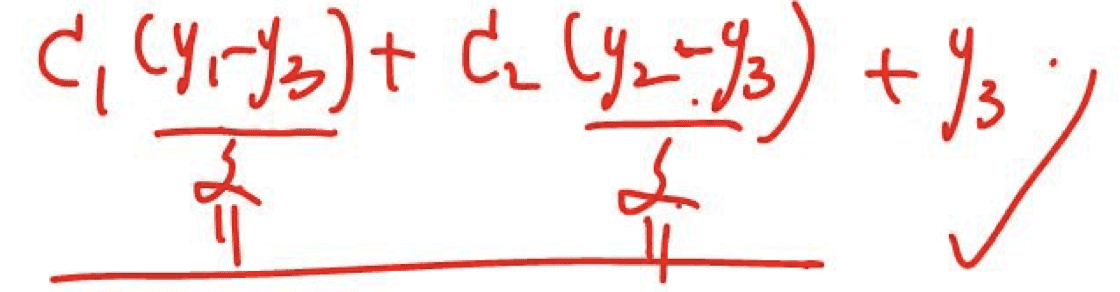 C₁(y₁-y₃)+C₂(y₂-y₃)+y₃.